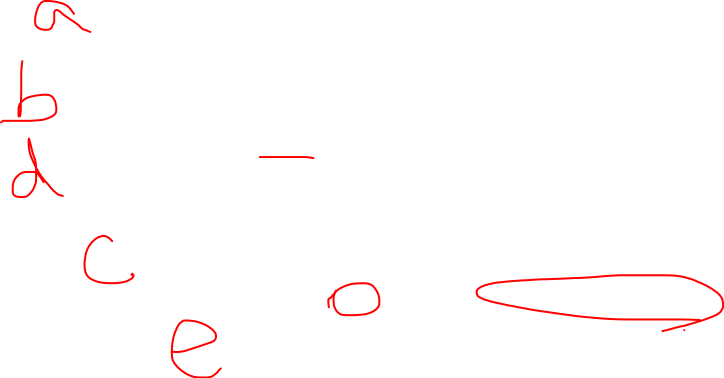 a
b
d
c
e